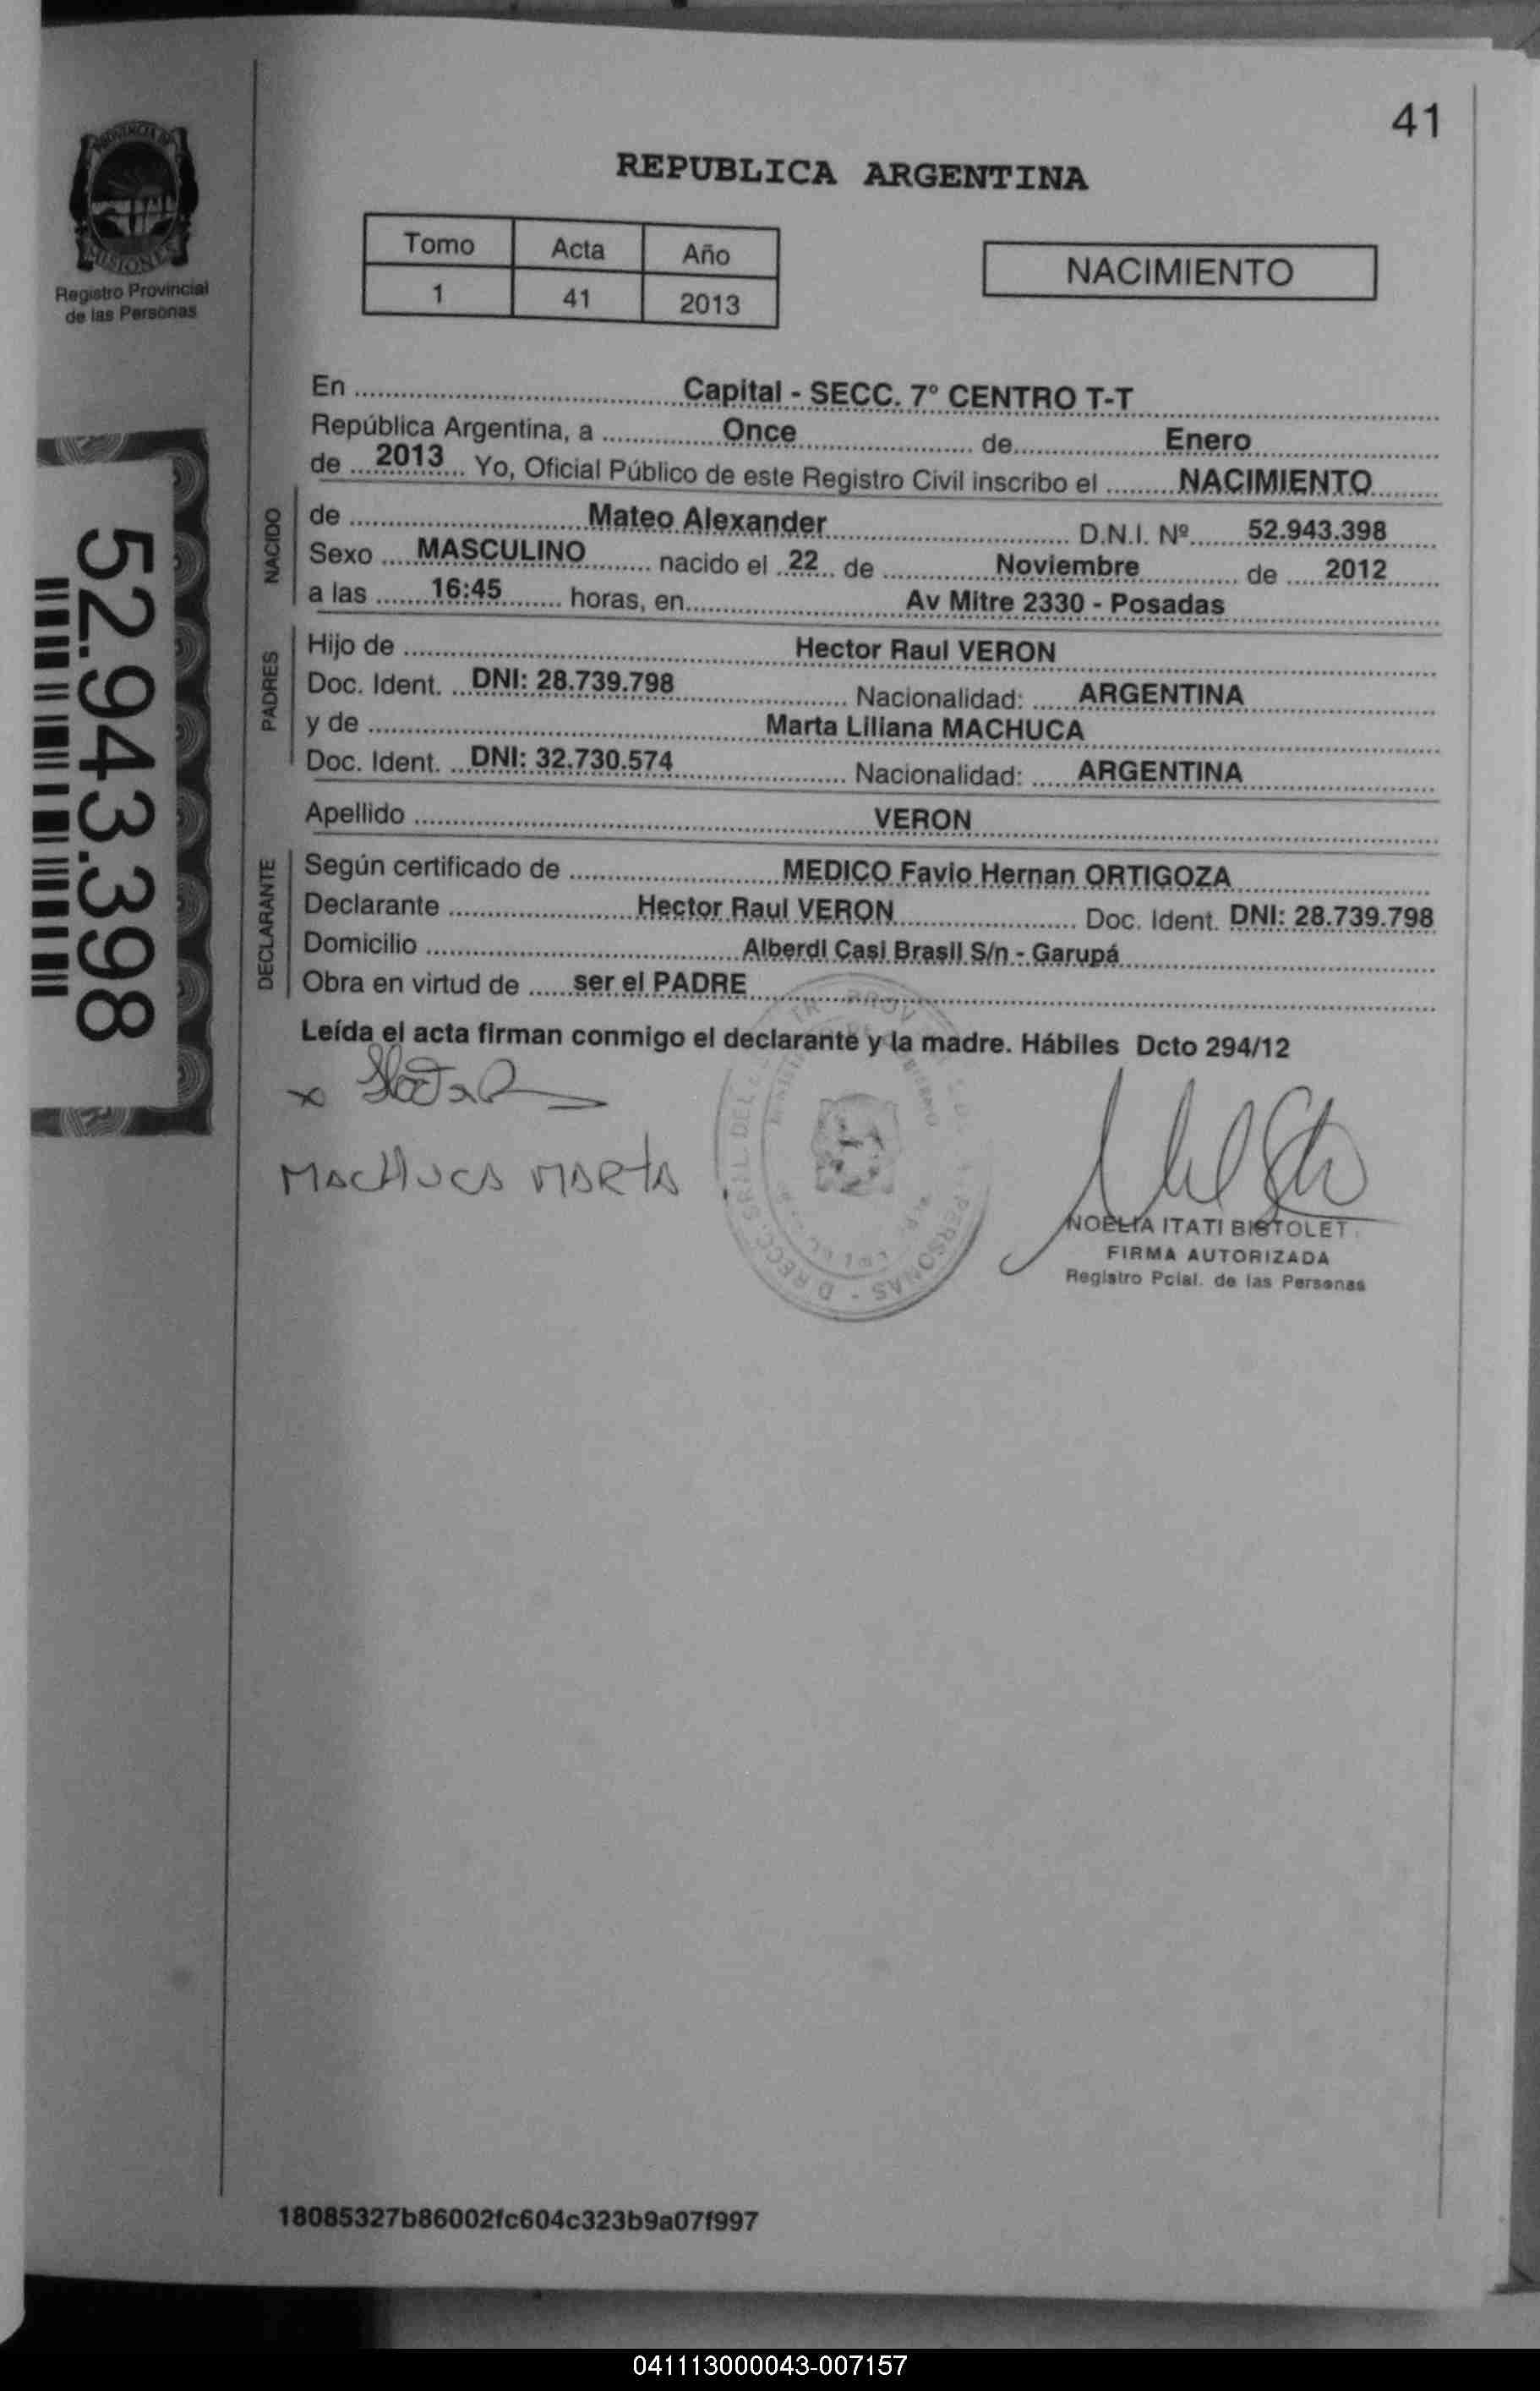 41
REPUBLICA ARGENTINA
PROVINCIA DE
MISIONES
Registro Provincial
de las Personas
Tomo Acta Año
1 41 2013
NACIMIENTO
52.943.398
En Capital - SECC. 7° CENTRO T-T
República Argentina, a Once de Enero
de 2013 Yo, Oficial Público de este Registro Civil inscribo el NACIMIENTO
NACIDO
de Mateo Alexander D.N.I. Nº 52.943.398
Sexo MASCULINO nacido el 22 de Noviembre de 2012
a las 16:45 horas, en Av Mitre 2330 - Posadas
PADRES
Hijo de Hector Raul VERON
Doc. Ident. DNI: 28.739.798 Nacionalidad: ARGENTINA
y de Marta Liliana MACHUCA
Doc. Ident. DNI: 32.730.574 Nacionalidad: ARGENTINA
Apellido VERON
DECLARANTE
Según certificado de MEDICO Favio Hernan ORTIGOZA
Declarante Hector Raul VERON Doc. Ident. DNI: 28.739.798
Domicilio Alberdi Casi Brasil S/n - Garupá
Obra en virtud de ser el PADRE
Leída el acta firman conmigo el declarante y la madre. Hábiles Dcto 294/12
MACHUCA MARTA
NOELIA ITATI BISTOLET
FIRMA AUTORIZADA
Registro Pcial. de las Personas
18085327b86002fc604c323b9a07f997
041113000043-007157